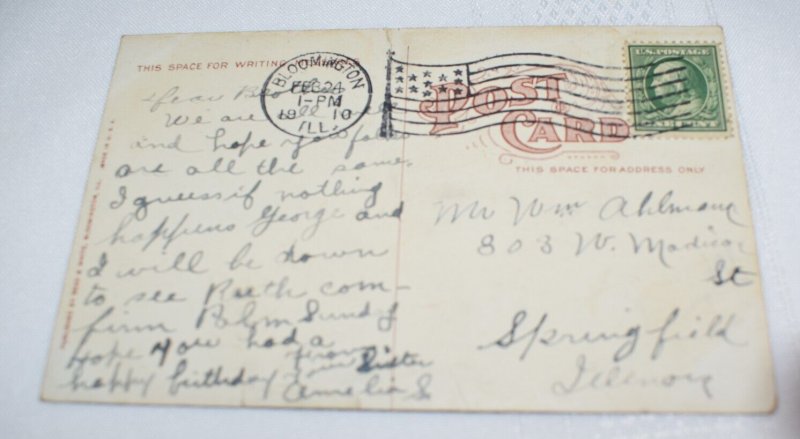 THIS SPACE FOR WRITING
BLOOMINGTON
FEB 24
1-PM
1910
ILL.
U.S. POSTAGE
POST
CARD
THIS SPACE FOR ADDRESS ONLY
Dear
We are all
and hope you
are all the same.
I guess if nothing
happens George and
I will be down
to see Ruth com-
firm Palm Sunday
hope you had a
happy birthday from your Sister
Amelia S
Mr Wm Ahlmann
803 W. Madison
St
Springfield
Illinois
MADE IN U.S.A.